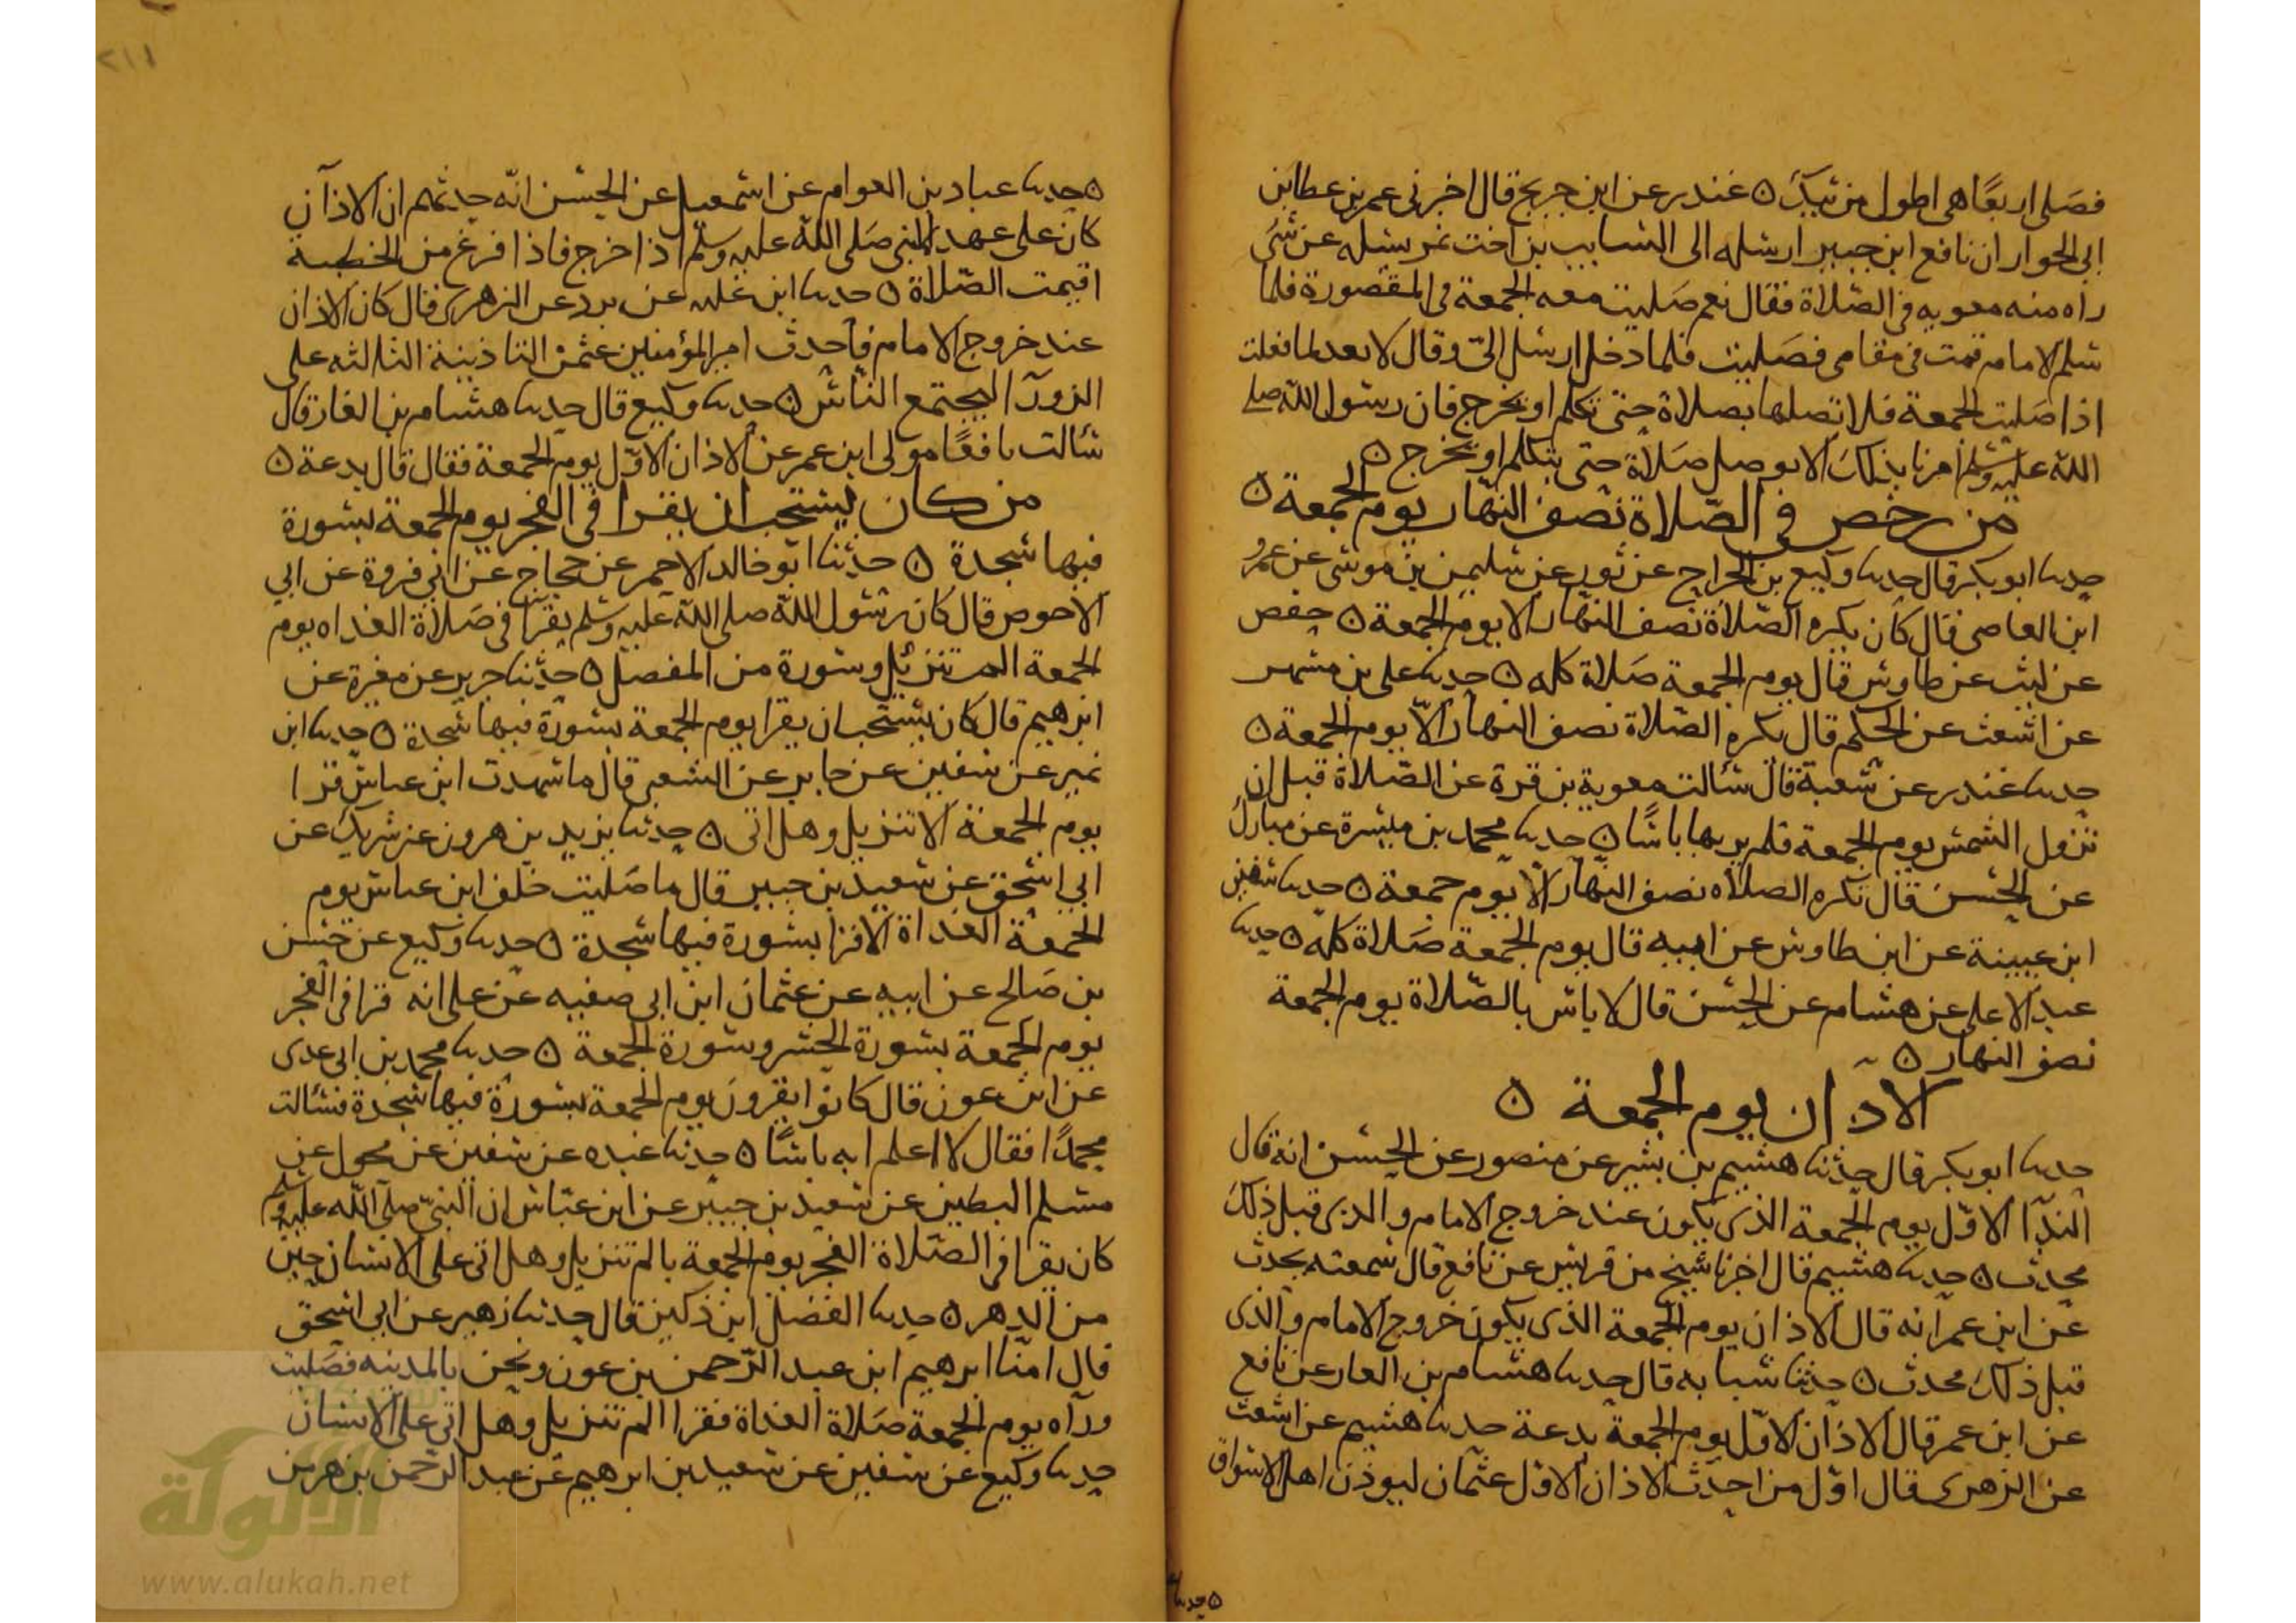 فصلى اربعًا هي اطول من تيك ۞ غندر عن ابن جريج قال اخبرني عمر بن عطا بن
ابي الحوار ان نافع ابن جبير ارسله الى السايب بن اخت نمر يسله عن شى
راه منه معويه في الصلاة فقال نعم صليت معه الجمعة في المقصورة فلما
سلم الامام قمت في مقامي فصليت فلما دخل ارسل الىّ وقال لا تعد لما فعلت
اذا صليت الجمعة فلا تصلها بصلاة حتى تكلم او تخرج فان رسول الله صلى
الله عليه وسلم امرنا بذلك الا يوصل صلاة حتى يتكلم او يخرج ۞
من رخص في الصلاة نصف النهار يوم الجمعة ۞
حدثنا ابو بكر قال حدثنا وكيع بن الجراح عن ثور عن سليمن بن موسى عن عمرو
ابن العاصي قال كان يكره الصلاة نصف النهار الا يوم الجمعة ۞ حفص
عن ليث عن طاوس قال يوم الجمعة صلاة كله ۞ حدثنا على بن مسهر
عن اشعث عن الحكم قال يكره الصلاة نصف النهار الا يوم الجمعة ۞
حدثنا غندر عن شعبة قال سالت معوية بن قرة عن الصلاة قبل ان
تزول الشمس يوم الجمعة فلم ير بها باسًا ۞ حدثنا محمد بن ميسرة عن مبارك
عن الحسن قال تكره الصلاه نصف النهار الا يوم جمعة ۞ حدثنا سفين
ابن عيينة عن ابن طاوس عن ابيه قال يوم الجمعة صلاة كله ۞ حدثنا
عبد الاعلى عن هشام عن الحسن قال لا باس بالصلاة يوم الجمعة
نصف النهار ۞
الاذان يوم الجمعة ۞
حدثنا ابو بكر قال حدثنا هشيم بن بشير عن منصور عن الحسن انه قال
الندآ الاوّل يوم الجمعة الذي يكون عند خروج الامام والذي قبل ذلك
محدث ۞ حدثنا هشيم قال اخبرنا شيخ من قريش عن نافع قال سمعته يحدث
عن ابن عمر انه قال الاذان يوم الجمعة الذي يكون خروج الامام والذي
قبل ذلك محدث ۞ حدثنا شبابه قال حدثنا هشام بن الغار عن نافع
عن ابن عمر قال الاذان الاوّل يوم الجمعة بدعة حدثنا هشيم عن اشعث
عن الزهرى قال اوّل من احدث الاذان الاوّل عثمان ليوذن اهل الاسواق
۞ حدثنا
۞ حدثنا عباد بن العوام عن اسمعيل عن الحسن انه حدثهم ان الاذان
كان على عهد النبي صلى الله عليه وسلم اذا خرج فاذا فرغ من الخطبة
اقيمت الصّلاة ۞ حدثنا ابن عليه عن برد عن الزهرى قال كان الاذان
عند خروج الامام فاحدث امير المؤمنين عثمن التاذينة الثالثه على
الزورآ ليجتمع النّاس ۞ حدثنا وكيع قال حدثنا هشام بن الغاز قال
سالت نافعًا مولى ابن عمر عن الاذان الاوّل يوم الجمعة فقال قال بدعة ۞
من كان يستحب ان يقرا في الفجر يوم الجمعة بسورة
فيها سجدة ۞ حدثنا ابو خالد الاحمر عن حجاج عن ابي فروة عن ابي
الاحوص قال كان رسول الله صلى الله عليه وسلم يقرا في صلاة الغداه يوم
الجمعة الم تنزيل وسورة من المفصل ۞ حدثنا جرير عن مغيرة عن
ابرهيم قال كان يستحب ان يقرا يوم الجمعة بسورة فيها سجدة ۞ حدثنا ابن
نمير عن سفين عن جابر عن الشعبي قال ما شهدت ابن عباس قرا
يوم الجمعة الا تنزيل وهل اتى ۞ حدثنا يزيد بن هرون عن شريك عن
ابي اسحق عن سعيد بن جبير قال ما صليت خلف ابن عباس يوم
الجمعة الغداة الا قرا بسورة فيها سجدة ۞ حدثنا وكيع عن حسن
بن صالح عن ابيه عن عثمان ابن ابي صفيه عن على انه قرا في الفجر
يوم الجمعة بسورة الحشر وسورة الجمعة ۞ حدثنا محمد بن ابي عدى
عن ابن عون قال كانوا يقرون يوم الجمعة بسورة فيها سجدة فسالت
محمدًا فقال لا اعلم به باسًا ۞ حدثنا عبده عن سفين عن مخول عن
مسلم البطين عن سعيد بن جبير عن ابن عبّاس ان النبيّ صلى الله عليه وسلم
كان يقرا في الصّلاة الفجر يوم الجمعة بالم تنزيل وهل اتى على الانسان حين
من الدهر ۞ حدثنا الفضل ابن دكين قال حدثنا زهير عن ابي اسحق
قال امّنا ابرهيم ابن عبد الرّحمن بن عون ونحن بالمدينه فصليت
ورآه يوم الجمعة صلاة الغداة فقرا الم تنزيل وهل اتى على الانسان
حدثنا وكيع عن سفين عن سعيد بن ابرهيم عن عبد الرحمن بن هرمن
٢١١
الألوكة
www.alukah.net